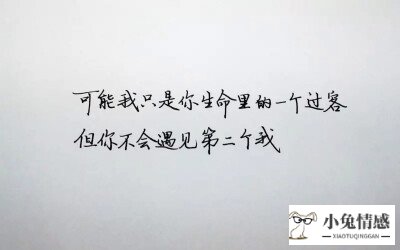 可能我只是你生命里的一个过客
但你不会遇见第二个我
小兔情感
XIAOTUQINGGAN